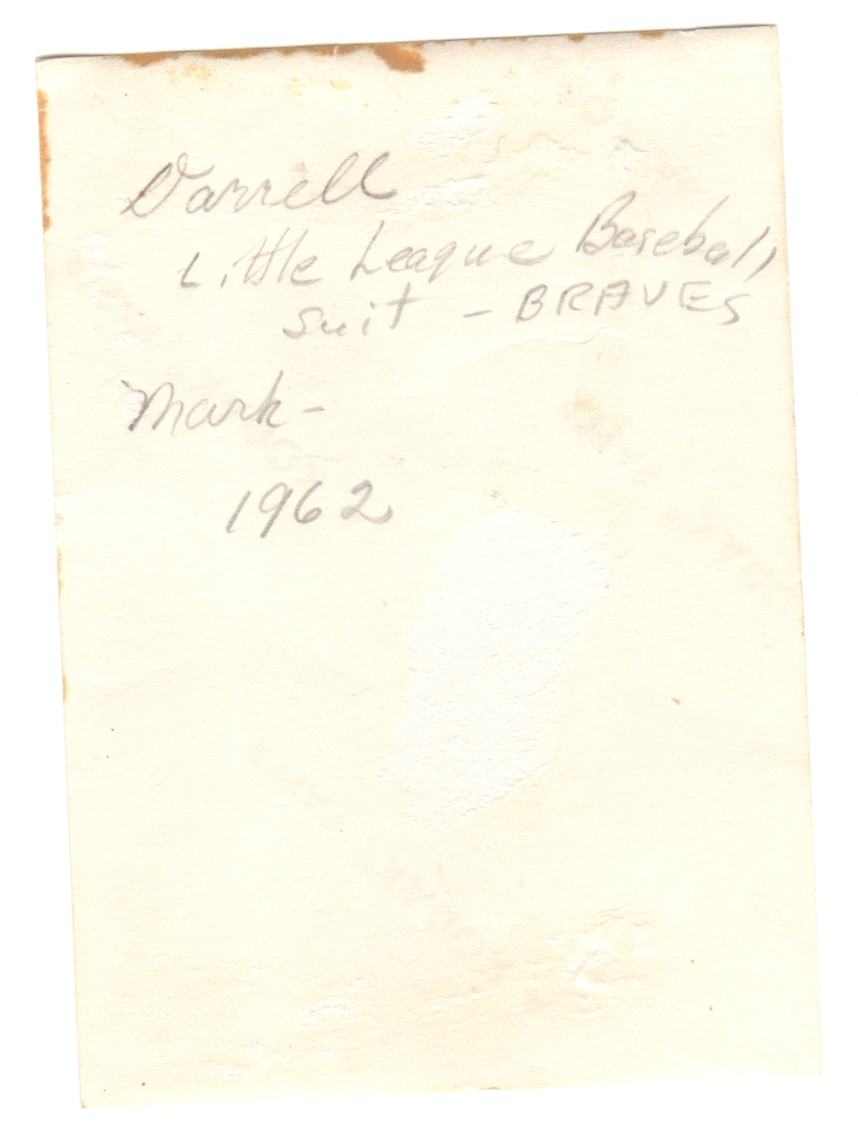 Darrell
Little League Baseball
suit - BRAVES
Mark -
1962